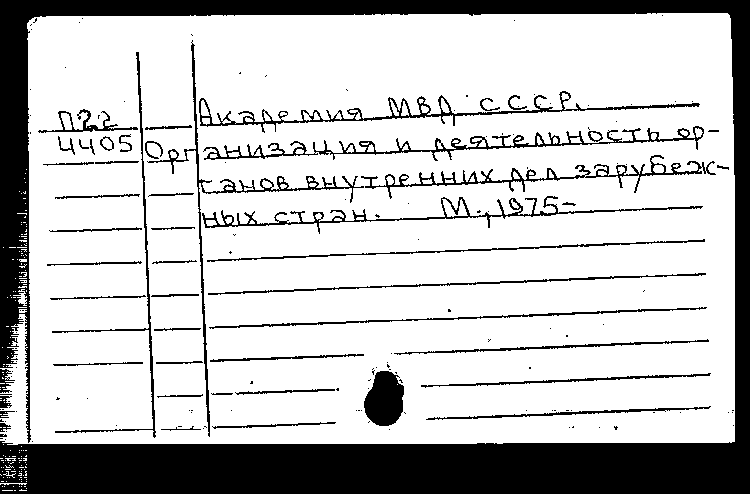 П22 Академия МВД СССР.
4405 Организация и деятельность ор-
ганов внутренних дел зарубеж-
ных стран. М., 1975-